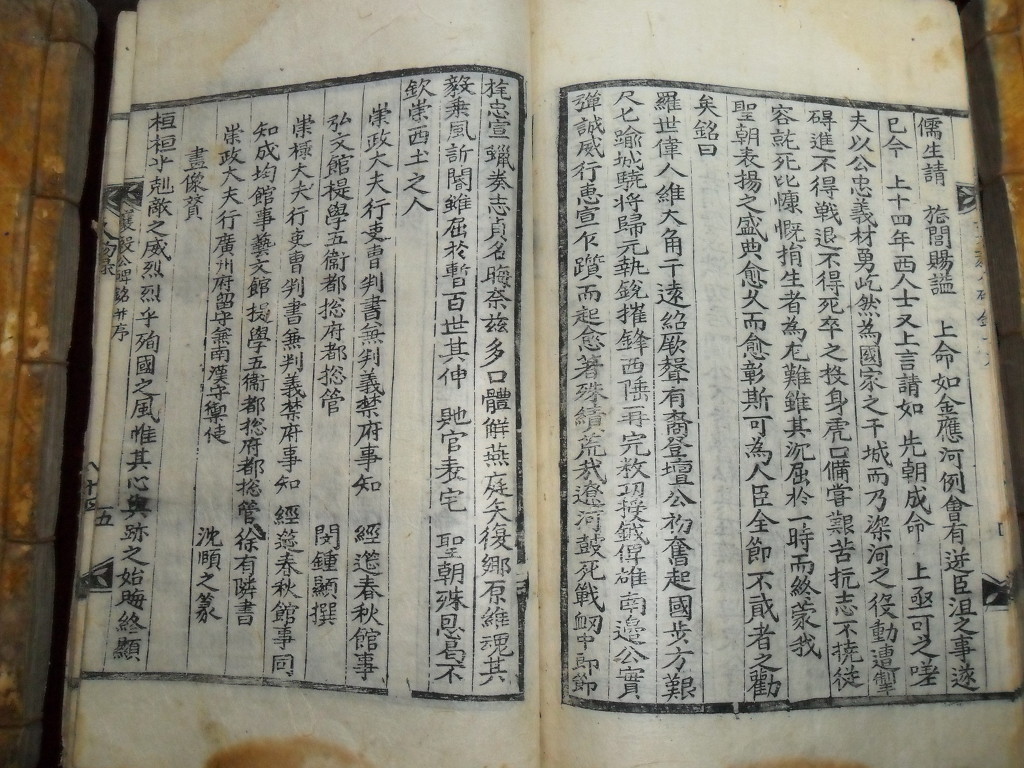 儒生請 旌閭賜謚 上命如金應河例會有逆臣沮之事遂
已今 上十四年西人士又上言請如 先朝成命 上亟可之嗟
夫以公忠義材勇屹然為國家之干城而乃深河之役動遭掣
碍進不得戦退不得死卒之投身虎口備嘗艱苦抗志不撓從
容就死比慷慨捐生者為尤難雖其沉屈於一時而終蒙我
聖朝表揚之盛典愈久而愈彰斯可為人臣全節不貳者之勸
矣銘曰
羅世偉人維大角干遠紹厥聲有裔登壇公初奮起國步方艱
尺七踰城驍將歸元執銳摧鋒西陲再完敉功授鉞俾碓南邉公實
殫誠威行惠宣乍躓而起愈著殊績荒我遼河鼓死戦衂中即節
旄忠宣蠟奏志貞名晦奈兹多口體觧燕庭矢復鄉原維魂其
毅乘風訢閽雖屈於暫百世其伸 貤官表宅 聖朝殊恩曷不
欽崇西土之人
崇政大夫行吏曹判書兼判義禁府事知 經邉春秋館事
弘文館提學五衛都総府都捴管 閔鍾顯撰
崇祿大夫行吏曹判書兼判義禁府事知 經邉春秋館事同
知成均館事藝文館提學五衛都捴府都捴管徐有隣書
崇政大夫行廣州府留守兼南漢守禦使 沈頤之篆
畫像贊
桓桓乎剋敵之威烈烈乎殉國之風惟其心與跡之始晦終顯
襄毅公碑銘并序
五